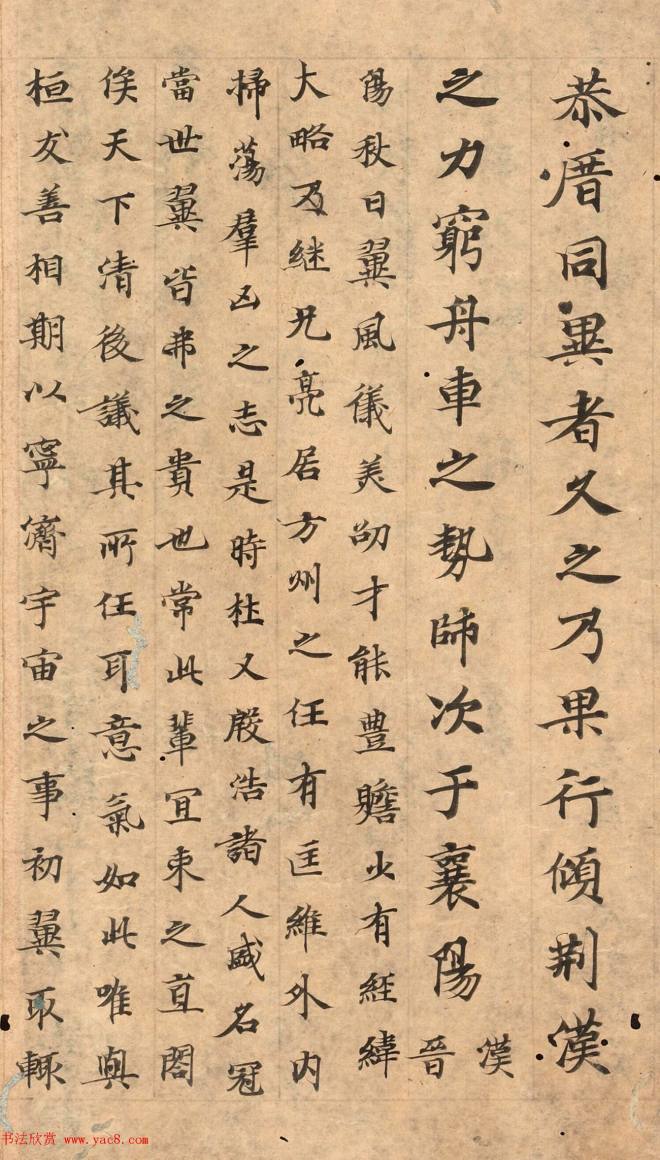 恭暦同異者久之乃果行傾荆漢
之力窮舟車之勢師次于襄陽漢晋
陽秋曰翼風儀美劭才能豊贍少有経緯
大略及継兄亮居方州之任有匡維外内
掃蕩羣凶之志是時杜乂殷浩諸人盛名冠
當世翼皆弗之貴也常此輩冝束之閣
俟天下清後議其所任耳意氣如此唯與
桓友善相期以寧濟宇宙之事初翼取輒
书法欣赏 www.yac8.com